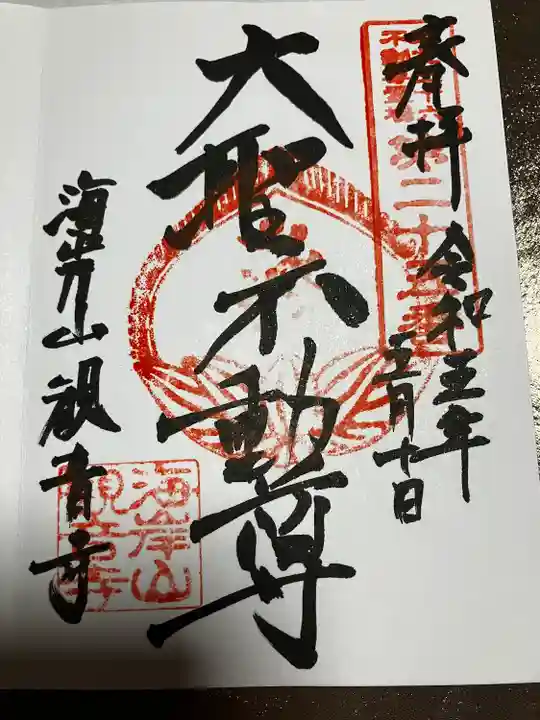 奉拝
令和五年
五月十日
大聖不動尊
海岸山観音寺
海岸山
観音寺